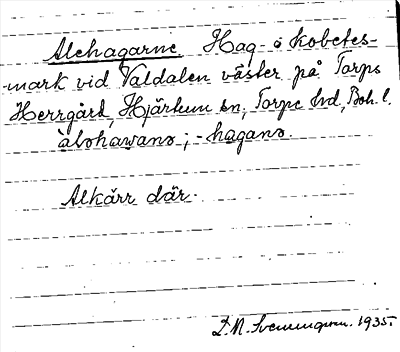 Alehagarne. Hag- o kobetes-
mark vid Valdalen väster på Torps
Herrgård Hjärtum sn, Torpe hd, Boh. l.
-haganɔ.
Alkärr där.
1935.